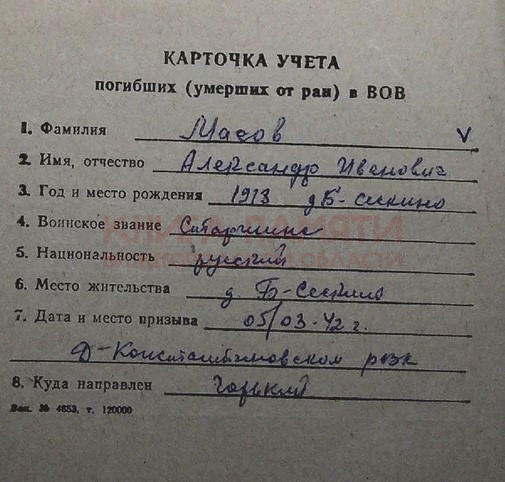 КАРТОЧКА УЧЕТА
погибших (умерших от ран) в ВОВ
1. Фамилия Масов V
2. Имя, отчество Александр Иванович
3. Год и место рождения 1913 д Б-Сескино
4. Воинское звание Старшина
5. Национальность русский
КНИГА ПАМЯТИ
ОБЛАСТИ
6. Место жительства д. Б-Сескино
7. Дата и место призыва 05/03-42 г.
Д-Константиновском рвк
8. Куда направлен Горький
Зак. № 4853, т. 120000